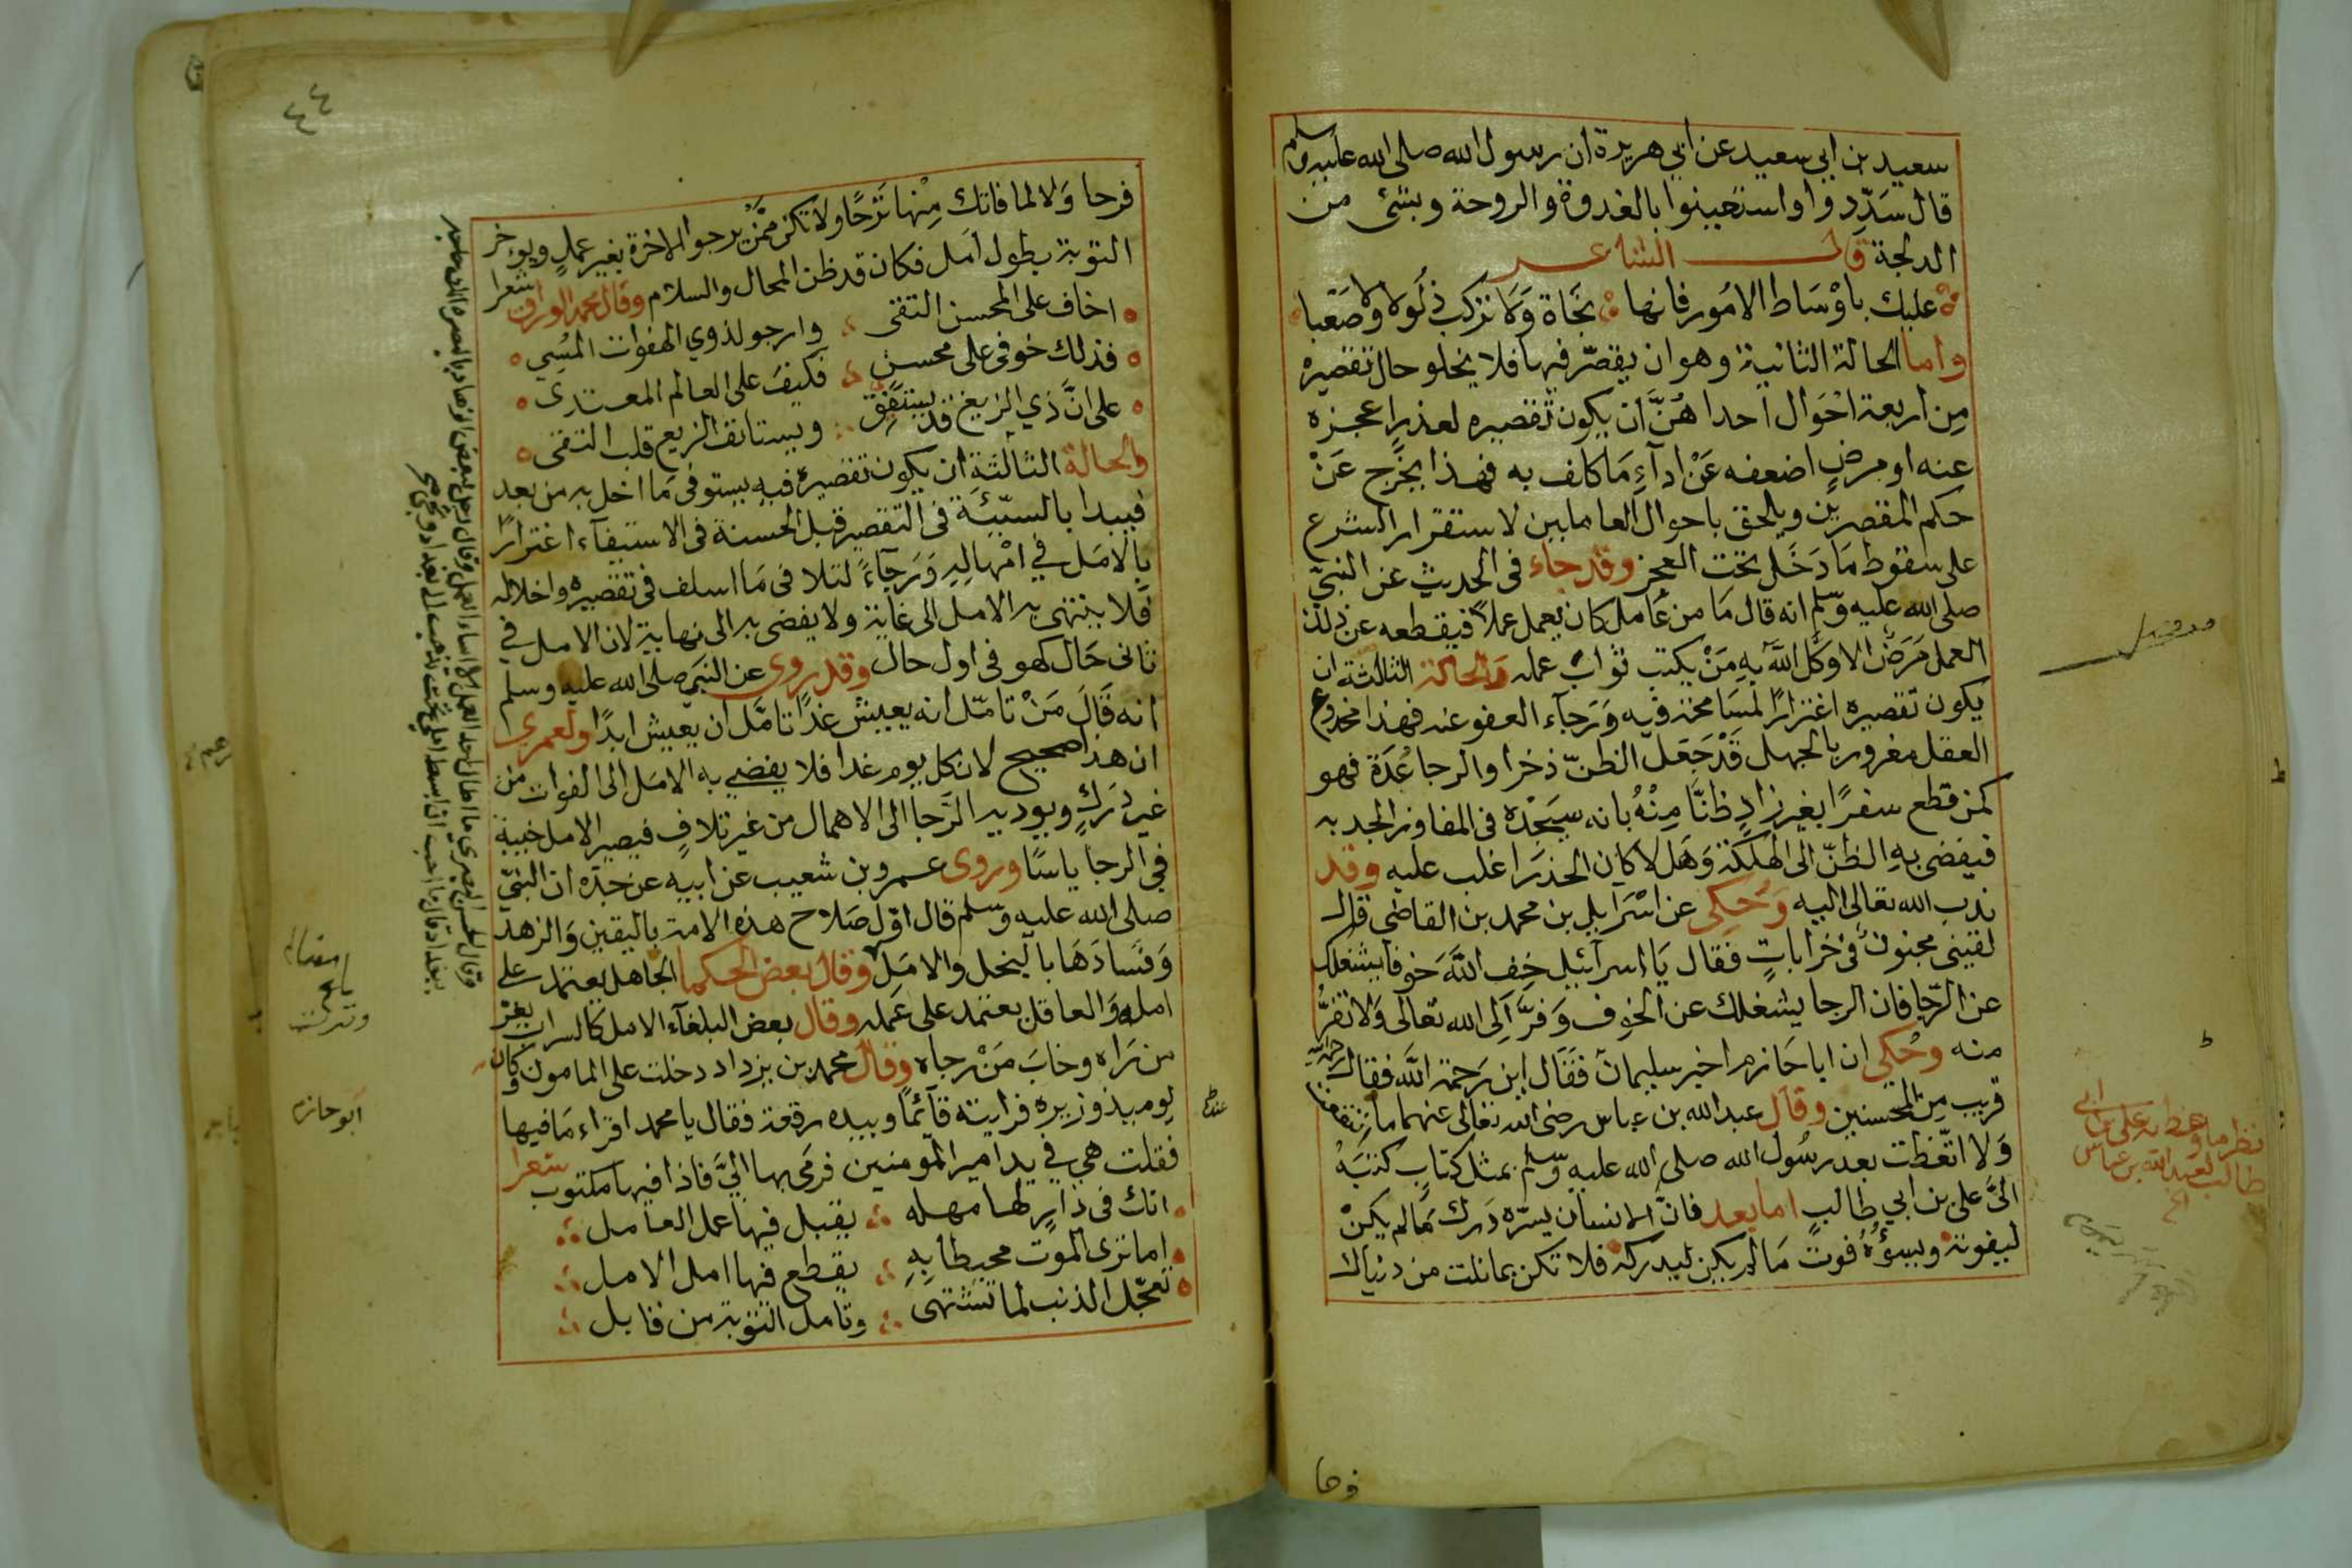 سعيد بن ابي سعيد عن ابي هريرة ان رسول الله صلى الله عليه وسلم
قال سَدِّدوا واستعينوا بالغدوة والروحة وبشئ من
الدلجة قال الشاعر
عليك باوْسَاط الامُور فانها نجَاة وَلا تركب ذلُولا ولا صَعْبا
واما الحالة الثانية وهو ان يقصّر فيها فلا يخلو حال تقصيره
مِن اربعة احْوَال احداهُنَّ ان يكون تقصيره لعذر اعجزه
عنه او مرضٍ اضعفه عَنْ ادآءِ مَا كلف به فهذا يخرج عَنْ
حكم المقصرين ويلحق باحوال العاملين لاستقرار الشرع
على سقوط مَا دَخَل تحت العجز وقد جاء في الحديث عن النبيّ
صلى الله عليه وسلم انه قال مَا من عَامل كان يعمل عملاً فيقطعه عن ذلك
العمل مَرَضٌ الا وكَّل اللَّه بِهِ مَنْ يكتب ثوابَ عمله والحالة الثالثة ان
يكون تقصيره اغترارًا لمسَامحة فيه وَرَجآء العفو عنه فهذا مخدوع
العقل مغرور بالجهل قَدْ جَعَلَ الظنّ ذخرا والرجا عُدَة فهو
كمن قطع سفرًا بغير زادٍ ظنًّا مِنْهُ بانه سيَجْده في المفاوز الجدبه
فيفضي بِهِ الظنّ الى الهلكة وَهَل لا كان الحذر اغلب عليه وقد
ندب الله تعالى اليه وَحُكِي عن اسْرَايل بن محمد بن القاضي قال
لقيني مجنون في خراباتٍ فقال يَا اسرآئيل خِفِ اللَّهَ خوفا يشغلك
عن الرّجا فان الرجا يشغلك عن الخوف وَفرَّ اِلى الله تعَالى وَلا تفرَّ
منه وحُكي ان ابا حَازم اخبر سليمان فَقَال اين رَحمة اللَّه فقال
قريب مِن المحسنين وقال عبد الله بن عباس رضى الله تعالى عنهما ما انتفعت
وَلا اتّعَظت بعد رسُول الله صلى الله عليه وسلم بمثل كتابٍ كتبَهُ
اليَّ علي بن ابي طالبٍ اما بعد فانَّ الانسان يسرّه دَرك مَا لم يكنْ
ليفوته ويسوُّهُ فوت مَا لم يكن ليدركه فلا تكن بما نلت من دنياك
فرحا
نظر ما وعظ به علي بن ابي
طالب لعبد الله بن عباس
٤٤
فرحا وَلا لما فاتك مِنْها تَرْحًا ولا تكن ممَّن يرجوا الاخرة بغير عملٍ ويوخر
التوبة بطول امَل فكان قد ظن المحال والسلام وقال محمد الوراق شعرا
اخاف على المحسن التقى وارجو لذوي الهفوات المسِي
فذلك خوفي على محسن فكيف على العالم المعتدى
على انَّ ذي الزيغ قد يستفق ويستانف الزيع قلب التقى
والحالة الثالثة ان يكون تقصيره فيه يستوفي مَا اخل به من بعد
فيبدا بالسيّئة في التقصير قبل الحسنة في الاستيفآء اغترارًا
بالامَل في امْهالِهِ وَرَجآءً لتلافى مَا اسلف في تقصيره واخلاله
فلا ينتهى به الامل الى غاية ولا يفضي به الى نهاية لان الامل في
ثانى حَال كهو في اول حال وقد روي عن النبي صلى الله عليه وسلم
انه قَالَ مَنْ تامّل انه يعيش غدًا تامَّل ان يعيش ابدًا ولعمري
ان هذا صحيح لان كل يوم غدا فلا يفضي به الامَل الى الفوات من
غير دَركٍ ويوديه الرّجا الى الاهمال من غير تلافٍ فيصير الامل خيبة
في الرجا ياسًا وروى عمرو بن شعيب عن ابيه عن جدّه ان النبيّ
صلى الله عليه وسلم قال اوّل صَلاح هذه الامة باليقين وَالزهد
وَفسَادَهَا بالبخل والامَل وقال بعض الحكما الجاهل يعتمد على
امله وَالعاقل يعتمد على عَمله وقال بعض البلغآء الامل كالسراب يغر
من رَاه وخابَ مَنْ رجاه وقال محمد بن يزداد دخلت على المامون وكان
يوميذ وزيره فرايته قآئمًا وبيده رقعة فقال يا محمد اقراء مَا فيها
فقلت هي في يد امير المومنين فرمَى بها اليَّ فاذا فيها مكتوب شعرا
انك في دَارٍ لها مهله يقبل فيها عمل العامل
اما ترى الموت محيطا بِهِ يقطع فيها امل الامل
تعجّل الذنب لما تشتهى وتامل التوبة من قابل
ابو حازم